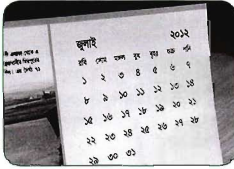 জুলাই ২০১২
রবি সোম মঙ্গল বুধ বৃহঃ শুক্র শনি
১ ২ ৩ ৪ ৫ ৬ ৭
৮ ৯ ১০ ১১ ১২ ১৩ ১৪
১৫ ১৬ ১৭ ১৮ ১৯ ২০ ২১
২২ ২৩ ২৪ ২৫ ২৬ ২৭ ২৮
২৯ ৩০ ৩১